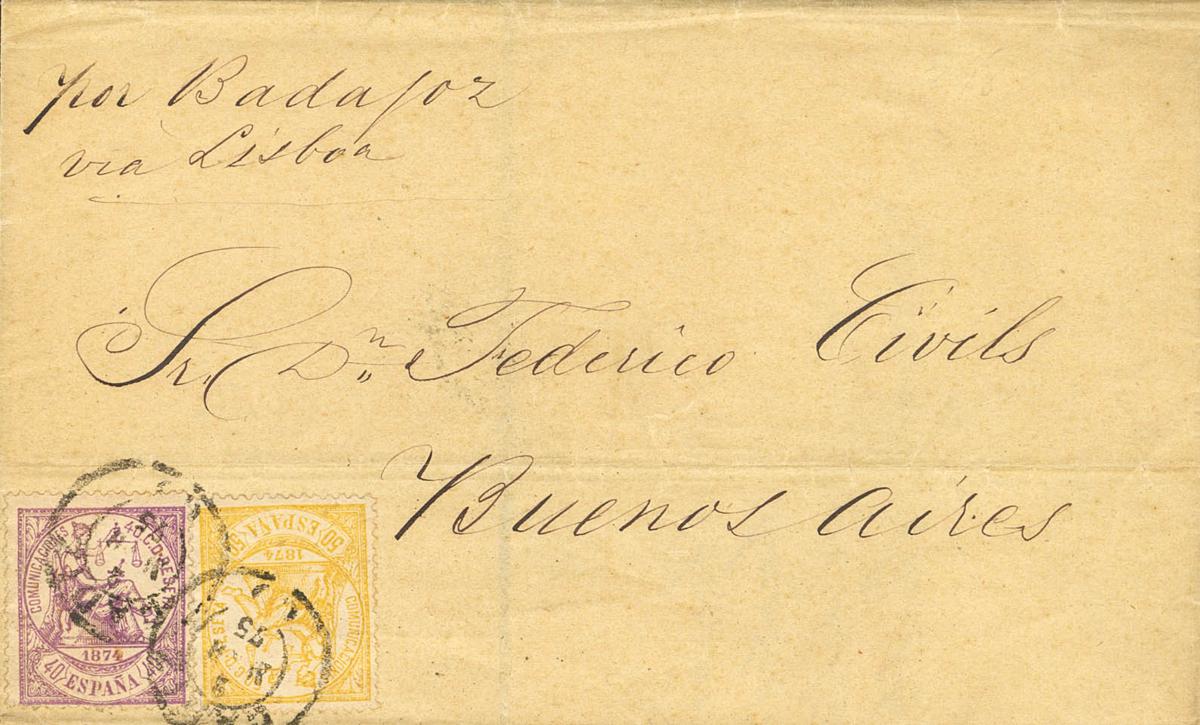 por Badajoz
via Lisboa
Sr. Dn. Federico Civils
Buenos aires
COMUNICACIONES
40 C. D. PESETA
1874
40 ESPAÑA
50 ESPAÑA 50
1874
COMUNICACIONES
75